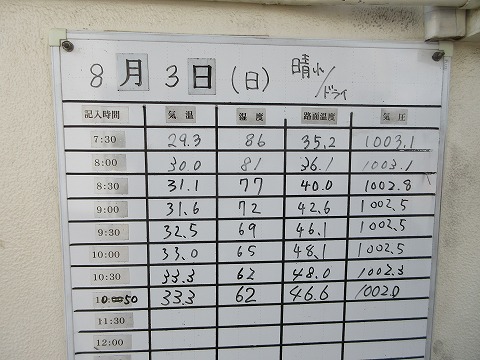 8月3日(日) 晴れ/ドライ
記入時間 気温 湿度 路面温度 気圧
7:30 29.3 86 35.2 1003.1
8:00 30.0 81 36.1 1003.1
8:30 31.1 77 40.0 1002.8
9:00 31.6 72 42.6 1002.5
9:30 32.5 69 46.1 1002.5
10:00 33.0 65 48.1 1002.5
10:30 33.3 62 48.0 1002.3
10:50 33.3 62 46.6 1002.0
11:30
12:00